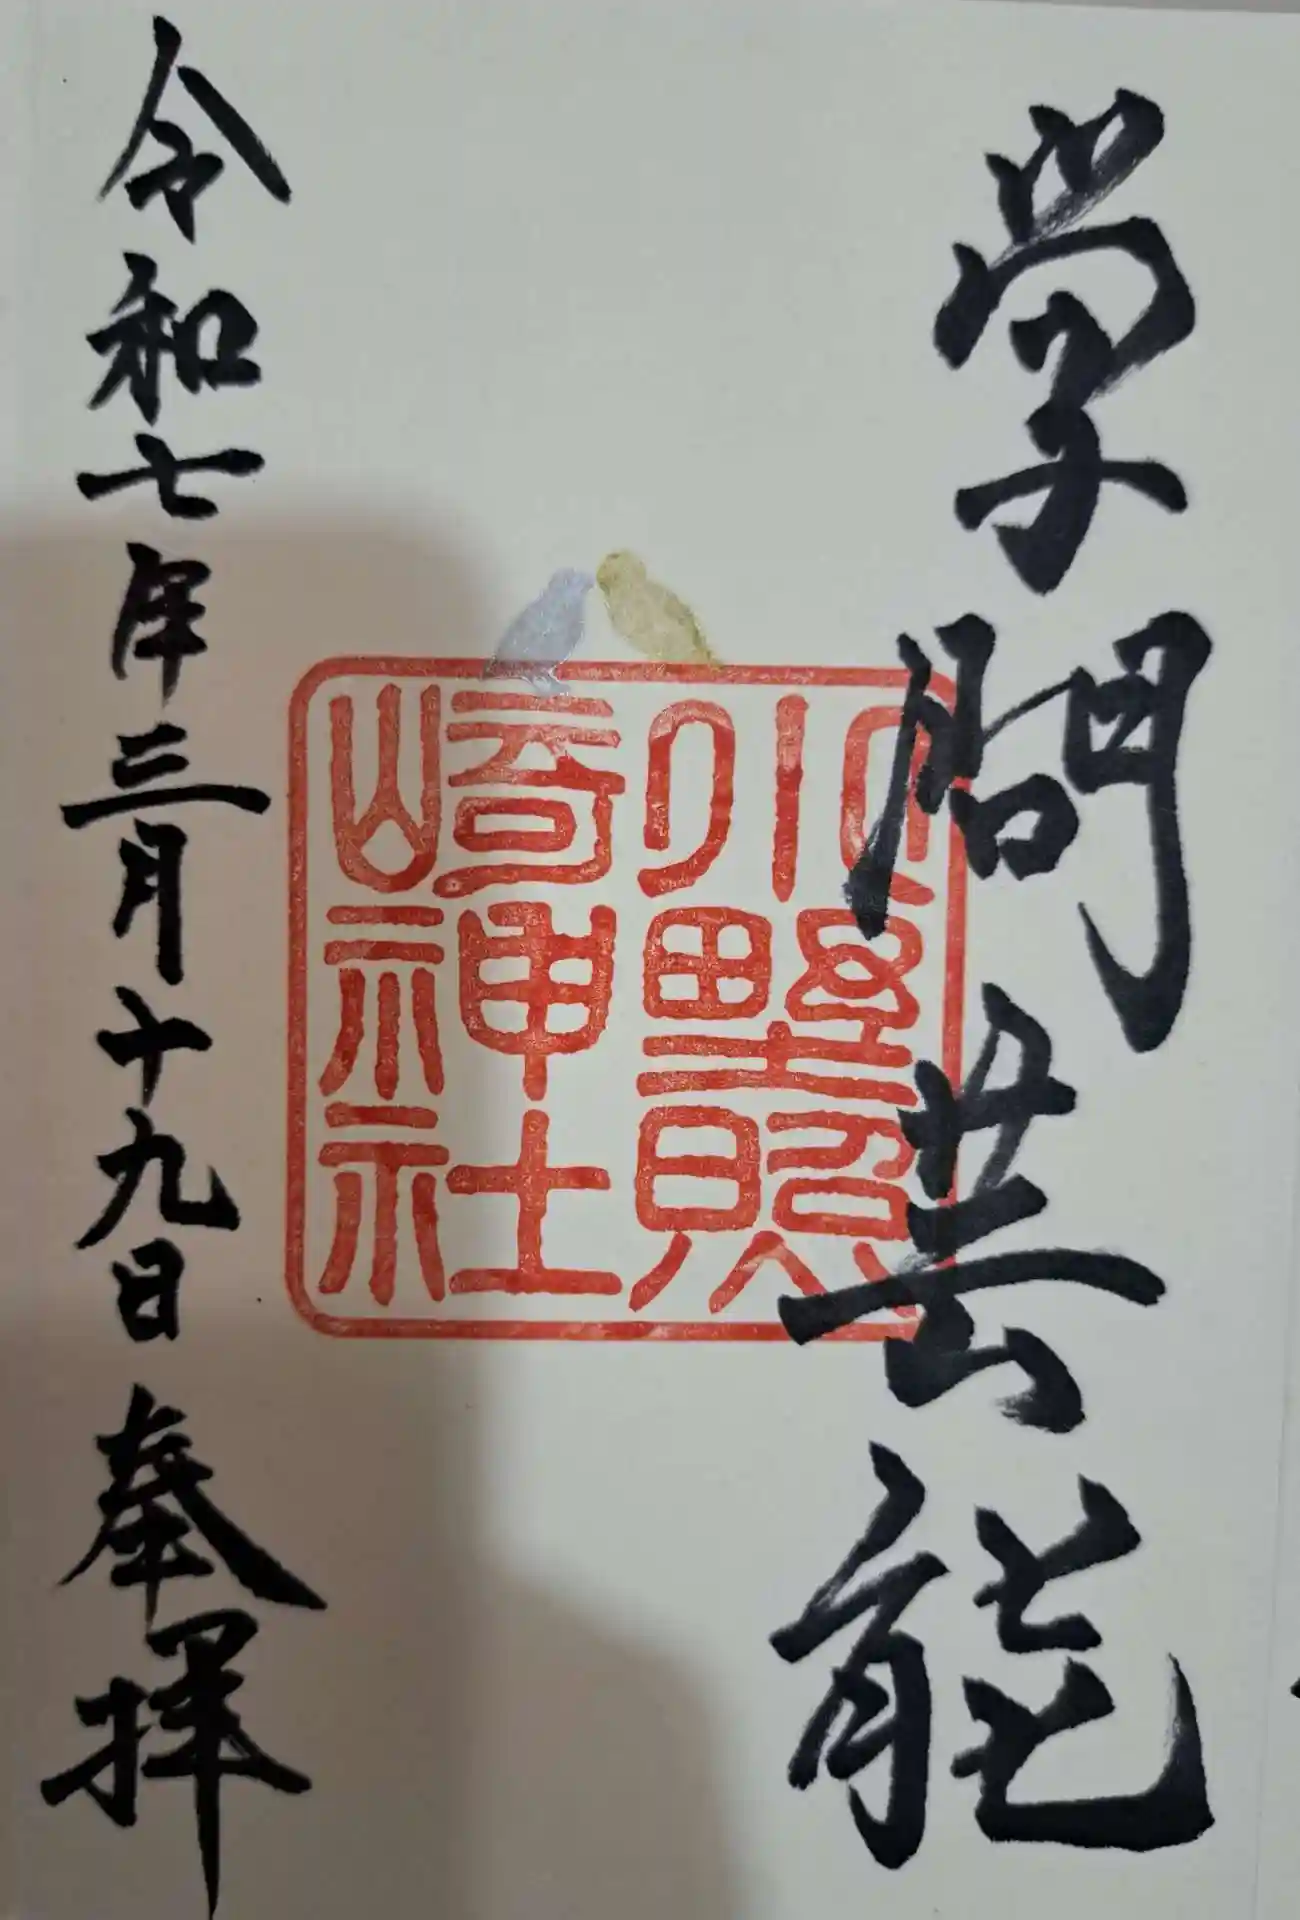 学問芸能
小野照
崎神社
令和七年三月十九日 奉拝